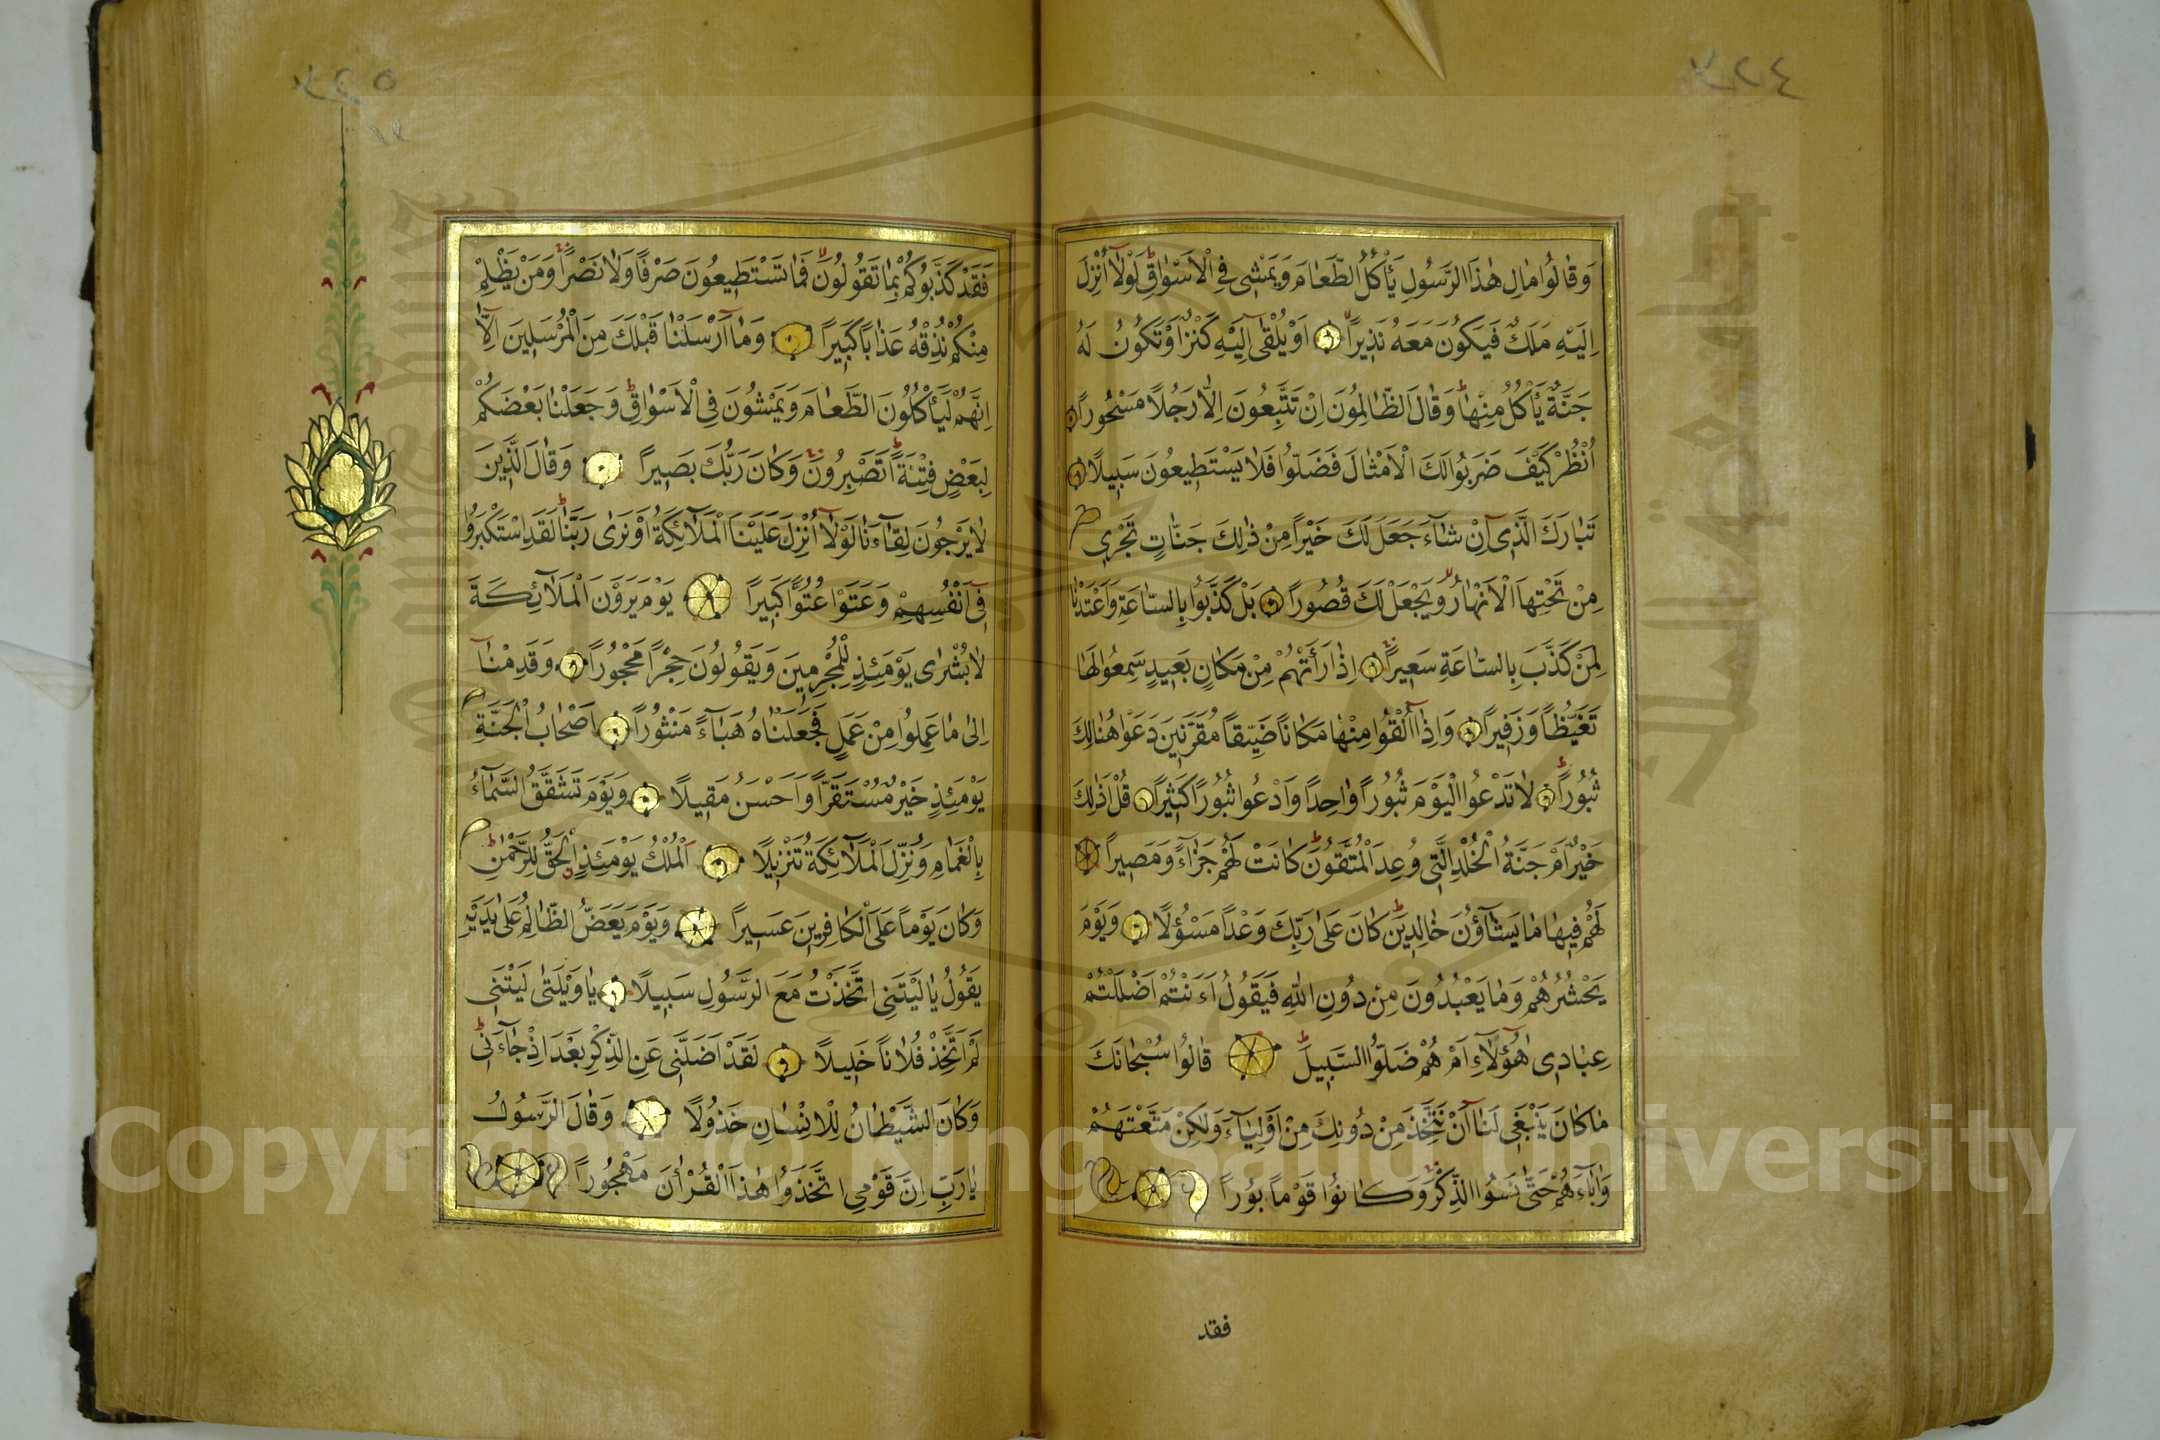 وَقَالُوا مَالِ هٰذَا الرَّسُولِ يَأْكُلُ الطَّعَامَ وَيَمْشِى فِى الْاَسْوَاقِ لَوْلَا اُنْزِلَ
اِلَيْهِ مَلَكٌ فَيَكُونَ مَعَهُ نَذِيرًا اَوْ يُلْقٰى اِلَيْهِ كَنْزٌ اَوْ تَكُونُ لَهُ
جَنَّةٌ يَأْكُلُ مِنْهَا وَقَالَ الظَّالِمُونَ اِنْ تَتَّبِعُونَ اِلَّا رَجُلًا مَسْحُورًا
اُنْظُرْ كَيْفَ ضَرَبُوا لَكَ الْاَمْثَالَ فَضَلُّوا فَلَا يَسْتَطِيعُونَ سَبِيلًا
تَبَارَكَ الَّذِى اِنْ شَاءَ جَعَلَ لَكَ خَيْرًا مِنْ ذٰلِكَ جَنَّاتٍ تَجْرِى
مِنْ تَحْتِهَا الْاَنْهَارُ وَيَجْعَلْ لَكَ قُصُورًا بَلْ كَذَّبُوا بِالسَّاعَةِ وَاَعْتَدْنَا
لِمَنْ كَذَّبَ بِالسَّاعَةِ سَعِيرًا اِذَا رَاَتْهُمْ مِنْ مَكَانٍ بَعِيدٍ سَمِعُوا لَهَا
تَغَيُّظًا وَزَفِيرًا وَاِذَا اُلْقُوا مِنْهَا مَكَانًا ضَيِّقًا مُقَرَّنِينَ دَعَوْا هُنَالِكَ
ثُبُورًا لَا تَدْعُوا الْيَوْمَ ثُبُورًا وَاحِدًا وَادْعُوا ثُبُورًا كَثِيرًا قُلْ اَذٰلِكَ
خَيْرٌ اَمْ جَنَّةُ الْخُلْدِ الَّتِى وُعِدَ الْمُتَّقُونَ كَانَتْ لَهُمْ جَزَاءً وَمَصِيرًا
لَهُمْ فِيهَا مَا يَشَاؤُنَ خَالِدِينَ كَانَ عَلٰى رَبِّكَ وَعْدًا مَسْؤُلًا وَيَوْمَ
يَحْشُرُهُمْ وَمَا يَعْبُدُونَ مِنْ دُونِ اللّٰهِ فَيَقُولُ ءَاَنْتُمْ اَضْلَلْتُمْ
عِبَادِى هٰؤُلَاءِ اَمْ هُمْ ضَلُّوا السَّبِيلَ قَالُوا سُبْحَانَكَ
مَا كَانَ يَنْبَغِى لَنَا اَنْ نَتَّخِذَ مِنْ دُونِكَ مِنْ اَوْلِيَاءَ وَلٰكِنْ مَتَّعْتَهُمْ
وَاٰبَاءَهُمْ حَتّٰى نَسُوا الذِّكْرَ وَكَانُوا قَوْمًا بُورًا
فقد
فَقَدْ كَذَّبُوكُمْ بِمَا تَقُولُونَ فَمَا تَسْتَطِيعُونَ صَرْفًا وَلَا نَصْرًا وَمَنْ يَظْلِمْ
مِنْكُمْ نُذِقْهُ عَذَابًا كَبِيرًا وَمَا اَرْسَلْنَا قَبْلَكَ مِنَ الْمُرْسَلِينَ اِلَّا
اِنَّهُمْ لَيَأْكُلُونَ الطَّعَامَ وَيَمْشُونَ فِى الْاَسْوَاقِ وَجَعَلْنَا بَعْضَكُمْ
لِبَعْضٍ فِتْنَةً اَتَصْبِرُونَ وَكَانَ رَبُّكَ بَصِيرًا وَقَالَ الَّذِينَ
لَا يَرْجُونَ لِقَاءَنَا لَوْلَا اُنْزِلَ عَلَيْنَا الْمَلَائِكَةُ اَوْ نَرٰى رَبَّنَا لَقَدِ اسْتَكْبَرُوا
فِى اَنْفُسِهِمْ وَعَتَوْا عُتُوًّا كَبِيرًا يَوْمَ يَرَوْنَ الْمَلَائِكَةَ
لَا بُشْرٰى يَوْمَئِذٍ لِلْمُجْرِمِينَ وَيَقُولُونَ حِجْرًا مَحْجُورًا وَقَدِمْنَا
اِلٰى مَا عَمِلُوا مِنْ عَمَلٍ فَجَعَلْنَاهُ هَبَاءً مَنْثُورًا اَصْحَابُ الْجَنَّةِ
يَوْمَئِذٍ خَيْرٌ مُسْتَقَرًّا وَاَحْسَنُ مَقِيلًا وَيَوْمَ تَشَقَّقُ السَّمَاءُ
بِالْغَمَامِ وَنُزِّلَ الْمَلَائِكَةُ تَنْزِيلًا اَلْمُلْكُ يَوْمَئِذٍ الْحَقُّ لِلرَّحْمٰنِ
وَكَانَ يَوْمًا عَلَى الْكَافِرِينَ عَسِيرًا وَيَوْمَ يَعَضُّ الظَّالِمُ عَلٰى يَدَيْهِ
يَقُولُ يَا لَيْتَنِى اتَّخَذْتُ مَعَ الرَّسُولِ سَبِيلًا يَا وَيْلَتٰى لَيْتَنِى
لَمْ اَتَّخِذْ فُلَانًا خَلِيلًا لَقَدْ اَضَلَّنِى عَنِ الذِّكْرِ بَعْدَ اِذْ جَاءَنِى
وَكَانَ الشَّيْطَانُ لِلْاِنْسَانِ خَذُولًا وَقَالَ الرَّسُولُ
يَا رَبِّ اِنَّ قَوْمِى اتَّخَذُوا هٰذَا الْقُرْاٰنَ مَهْجُورًا
Copyright © King Saud University